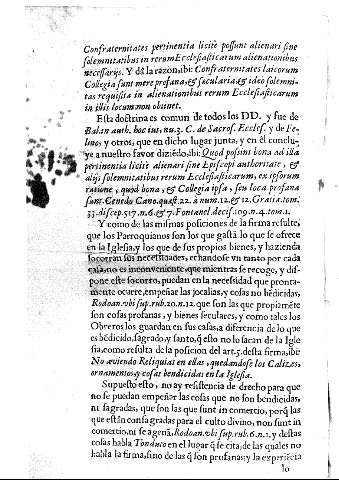 Confraternitates pertinentia licitè possunt alienari sine
solemnitatibus in rerum Ecclesiasticarum alienationibus
necessarijs. Y dá la razon, ibi: Confraternitates laicorum
Collegia sunt mere profana, & sæcularia, & ideo solemni-
tas requisita in alienationibus rerum Ecclesiasticarum
in illis locum non obtinet.
Esta doctrina es comun de todos los DD. y fue de
Balan auth. hoc ius, nu. 3. C. de Sacros. Eccles. y de Fe-
lino, y otros, que en dicho lugar junta, y en él conclu-
ye a nuestro favor diziẽdo, ibi: Quod possint bona ad illa
pertinentia licitè alienari sine Episcopi authoritate, &
alijs solemnitatibus rerum Ecclesiasticarum, ex ipsorum
ratione, quod bona, & Collegia ipsa, seu loca profana
sunt. Cenedo Cano. quæst. 22. à num. 12. & 12. Gratia. tom.
33. discep. 517. n. 6. & 7. Fontanel. decis. 109. n. 4. tom. 1.
Y como de las mismas posiciones de la firma resulte,
que los Parroquianos son los que gastã lo que se ofrece
en la Iglesia, y los que de sus propios bienes, y hazienda
socorran sus necessidades, echandose vn tanto por cada
casa, no es inconveniente, que mientras se recoge, y dis-
pone este socorro, puedan en la necessidad que pronta-
mente ocurre, empeñar las jocalias, y cosas no bẽdicidas,
Rodoan. vbi sup. rub. 20. n. 12. que son las que propiamẽte
son cosas profanas, y bienes seculares, y como tales los
Obreros los guardan en sus casas, a diferencia de lo que
es bẽdicido, sagrado, y santo, q̃ esto no lo sacan de la Igle
sia, como resulta de la posicion del art. 5. desta firma, ibi:
No aviendo Reliquias en ellas, quedandose los Calizes,
ornamentos, y cosas bendicidas en la Iglesia.
Supuesto esto, no ay resistencia de derecho para que
no se puedan empeñar las cosas que no son bendicidas,
ni sagradas, que son las que sunt in comertio, porq̃ las
que estàn consagradas para el culto divino, non sunt in
comertio, ni se agenã, Rodoan. vbi sup. rub. 6. n. 1. y destas
cosas habla Tonduto en el lugar q̃ se cita, de las quales no
habla la firma, sino de las q̃ son profanas; y la experiẽcia
lo